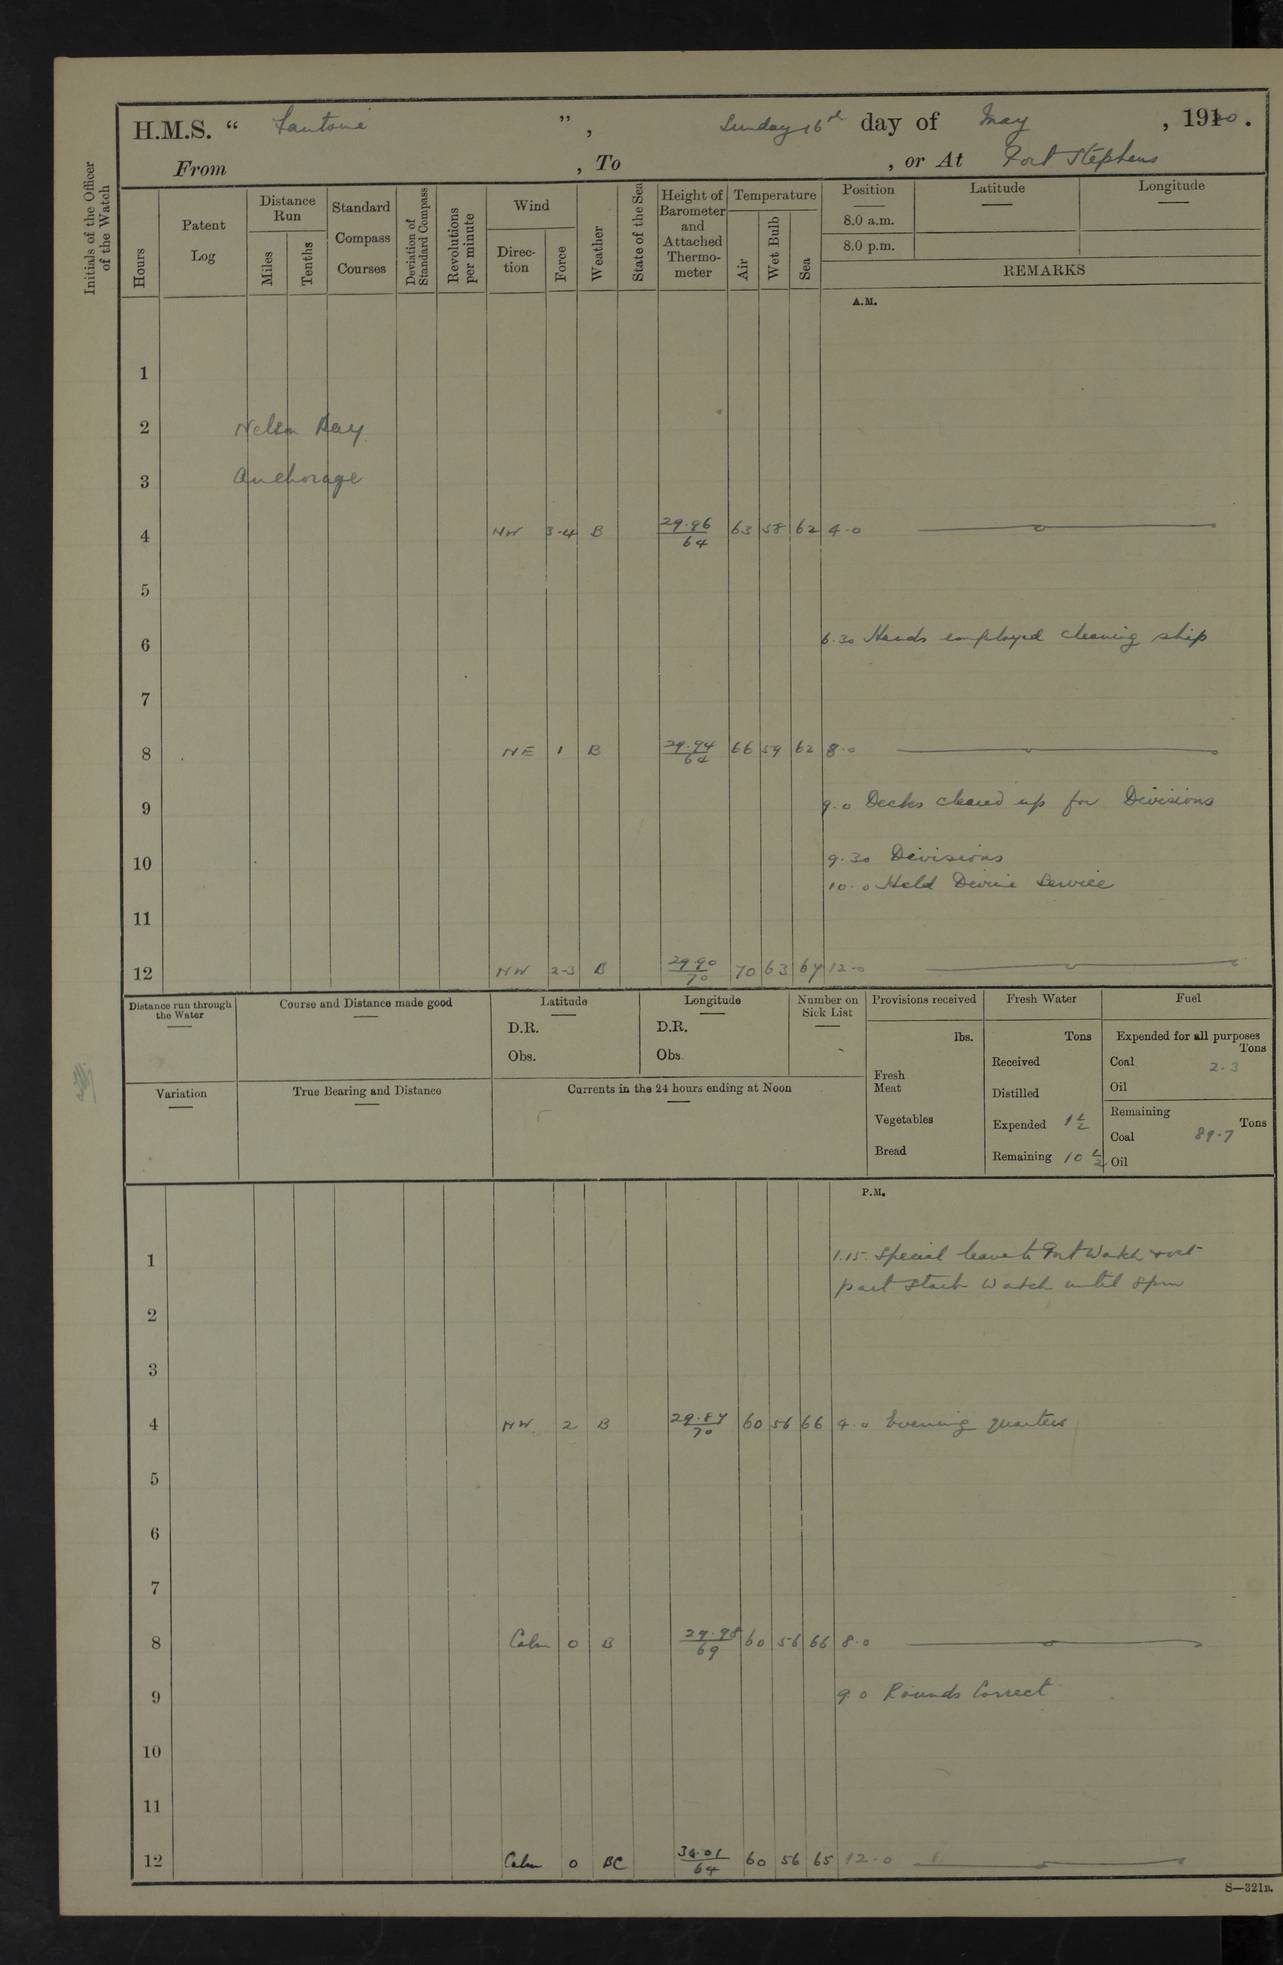 H.M.S. “ Fantome ”, Sunday 16th day of May, 1920.
From , To , or At Port Stephens
Initials of the Officer of the Watch
Hours
Patent Log
Distance Run
Miles
Tenths
Standard Compass Courses
Deviation of Standard Compass
Revolutions per minute
Wind
Direction
Force
Weather
State of the Sea
Height of Barometer and Attached Thermometer
Temperature
Air
Wet Bulb
Sea
Position
8.0 a.m.
8.0 p.m.
Latitude
Longitude
REMARKS
A.M.
1
2 Nelson Bay
3 Anchorage
4 NW 3-4 B 29.96 64 63 58 62 4.0
5
6 6.30 Hands employed cleaning ship
7
8 NE 1 B 29.94 64 66 59 62 8.0
9 9.0 Decks cleared up for Divisions
10 9.30 Divisions
10.0 Held Divine Service
11
12 NW 2-3 B 29.90 70 70 63 64 12.0
Distance run through the Water
Course and Distance made good
Latitude
D.R.
Obs.
Longitude
D.R.
Obs.
Number on Sick List
-
Provisions received
lbs.
Fresh Meat
Vegetables
Bread
Fresh Water
Tons
Received
Distilled
Expended 1½
Remaining 10½
Fuel
Expended for all purposes
Tons
Coal 2.3
Oil
Remaining
Tons
Coal 89.7
Oil
Variation
True Bearing and Distance
Currents in the 24 hours ending at Noon
P.M.
1 1.15. Special leave to Port Watch
part Starb Watch until 8pm
2
3
4 NW. 2 B 29.87 70 60 56 66 4.0 Evening quarters
5
6
7
8 Calm 0 B 29.98 69 60 56 66 8.0
9 9.0 Rounds Correct
10
11
12 Calm 0 BC 30.01 64 60 56 65 12.0
S—321B.